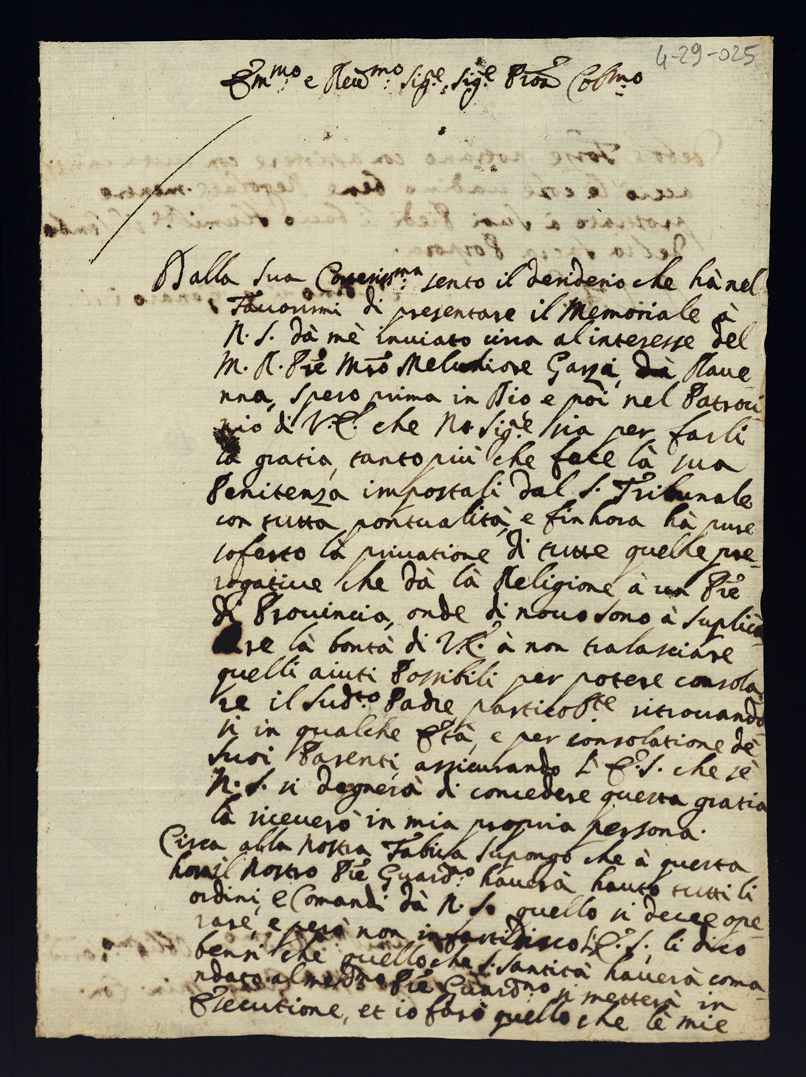 4-29-025
E.mmo e Reu.mo Sig.e, Sig.e Pron Col.mo
Dalla sua Corteris.ma sento il deriderio che hà nel
Fauorirmi di presentare il Memoriale à
N. S. dà mè inuiato circa al interesse del
M. R. Pre Mro Melchiore Garzi, dà Raue
nna, spero prima in Dio e poi nel Patroci
nio di V. E. che No Sig.e sia per farli
là gratia, tanto più che fece là sua
Penitenza impostali dal S. Tribunale
con tutta pontualità, e finhora hà pure
soferto là priuatione di tutte quelle pre-
rogatiue che dà là Religione à un Pre
di Prouincia, onde di nouo sono à suplica-
re là bontà di V. E. à non tralasciare
quelli aiuti Possibili per potere consola-
re il sud.to Padre, particol.te ritrouando-
si in qualche Età, e per consolatione dè
suoi Parenti, assicurando L'E. S. che sè
N. S. si degnerà di concedere questa gratia
là riceuerò in mia propria persona.
Circa alla nostra Fabrica supongo che à questa
hora il nostro Pre Guard.no hauerà hauto tutti li
ordini, e Comandi dà N. So quello si deue ope-
rare, e però non infastidisco L'E. S., li dico
bensi che quello che S. Santità hauerà coma-
ndato al medmo Pre Guard.no si metterà in
Essecutione, et io farò quello che le mie